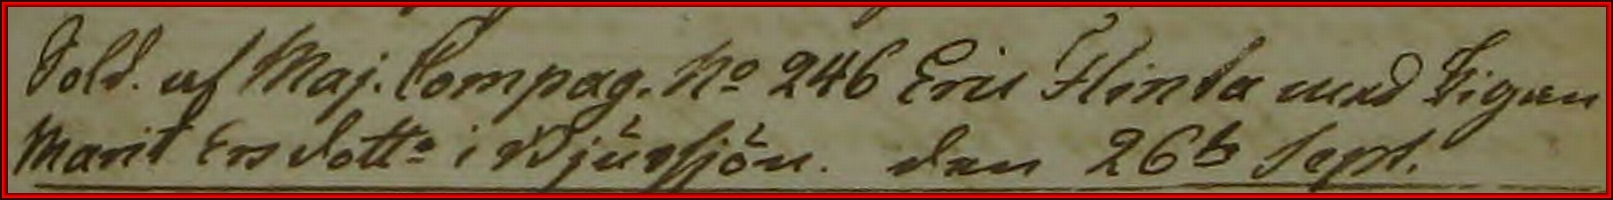 Sold. af Maj. Compag. No 246 Eric Flinta med Pigan
Marit Ersdottr i Djursjön. den 26te Sept.